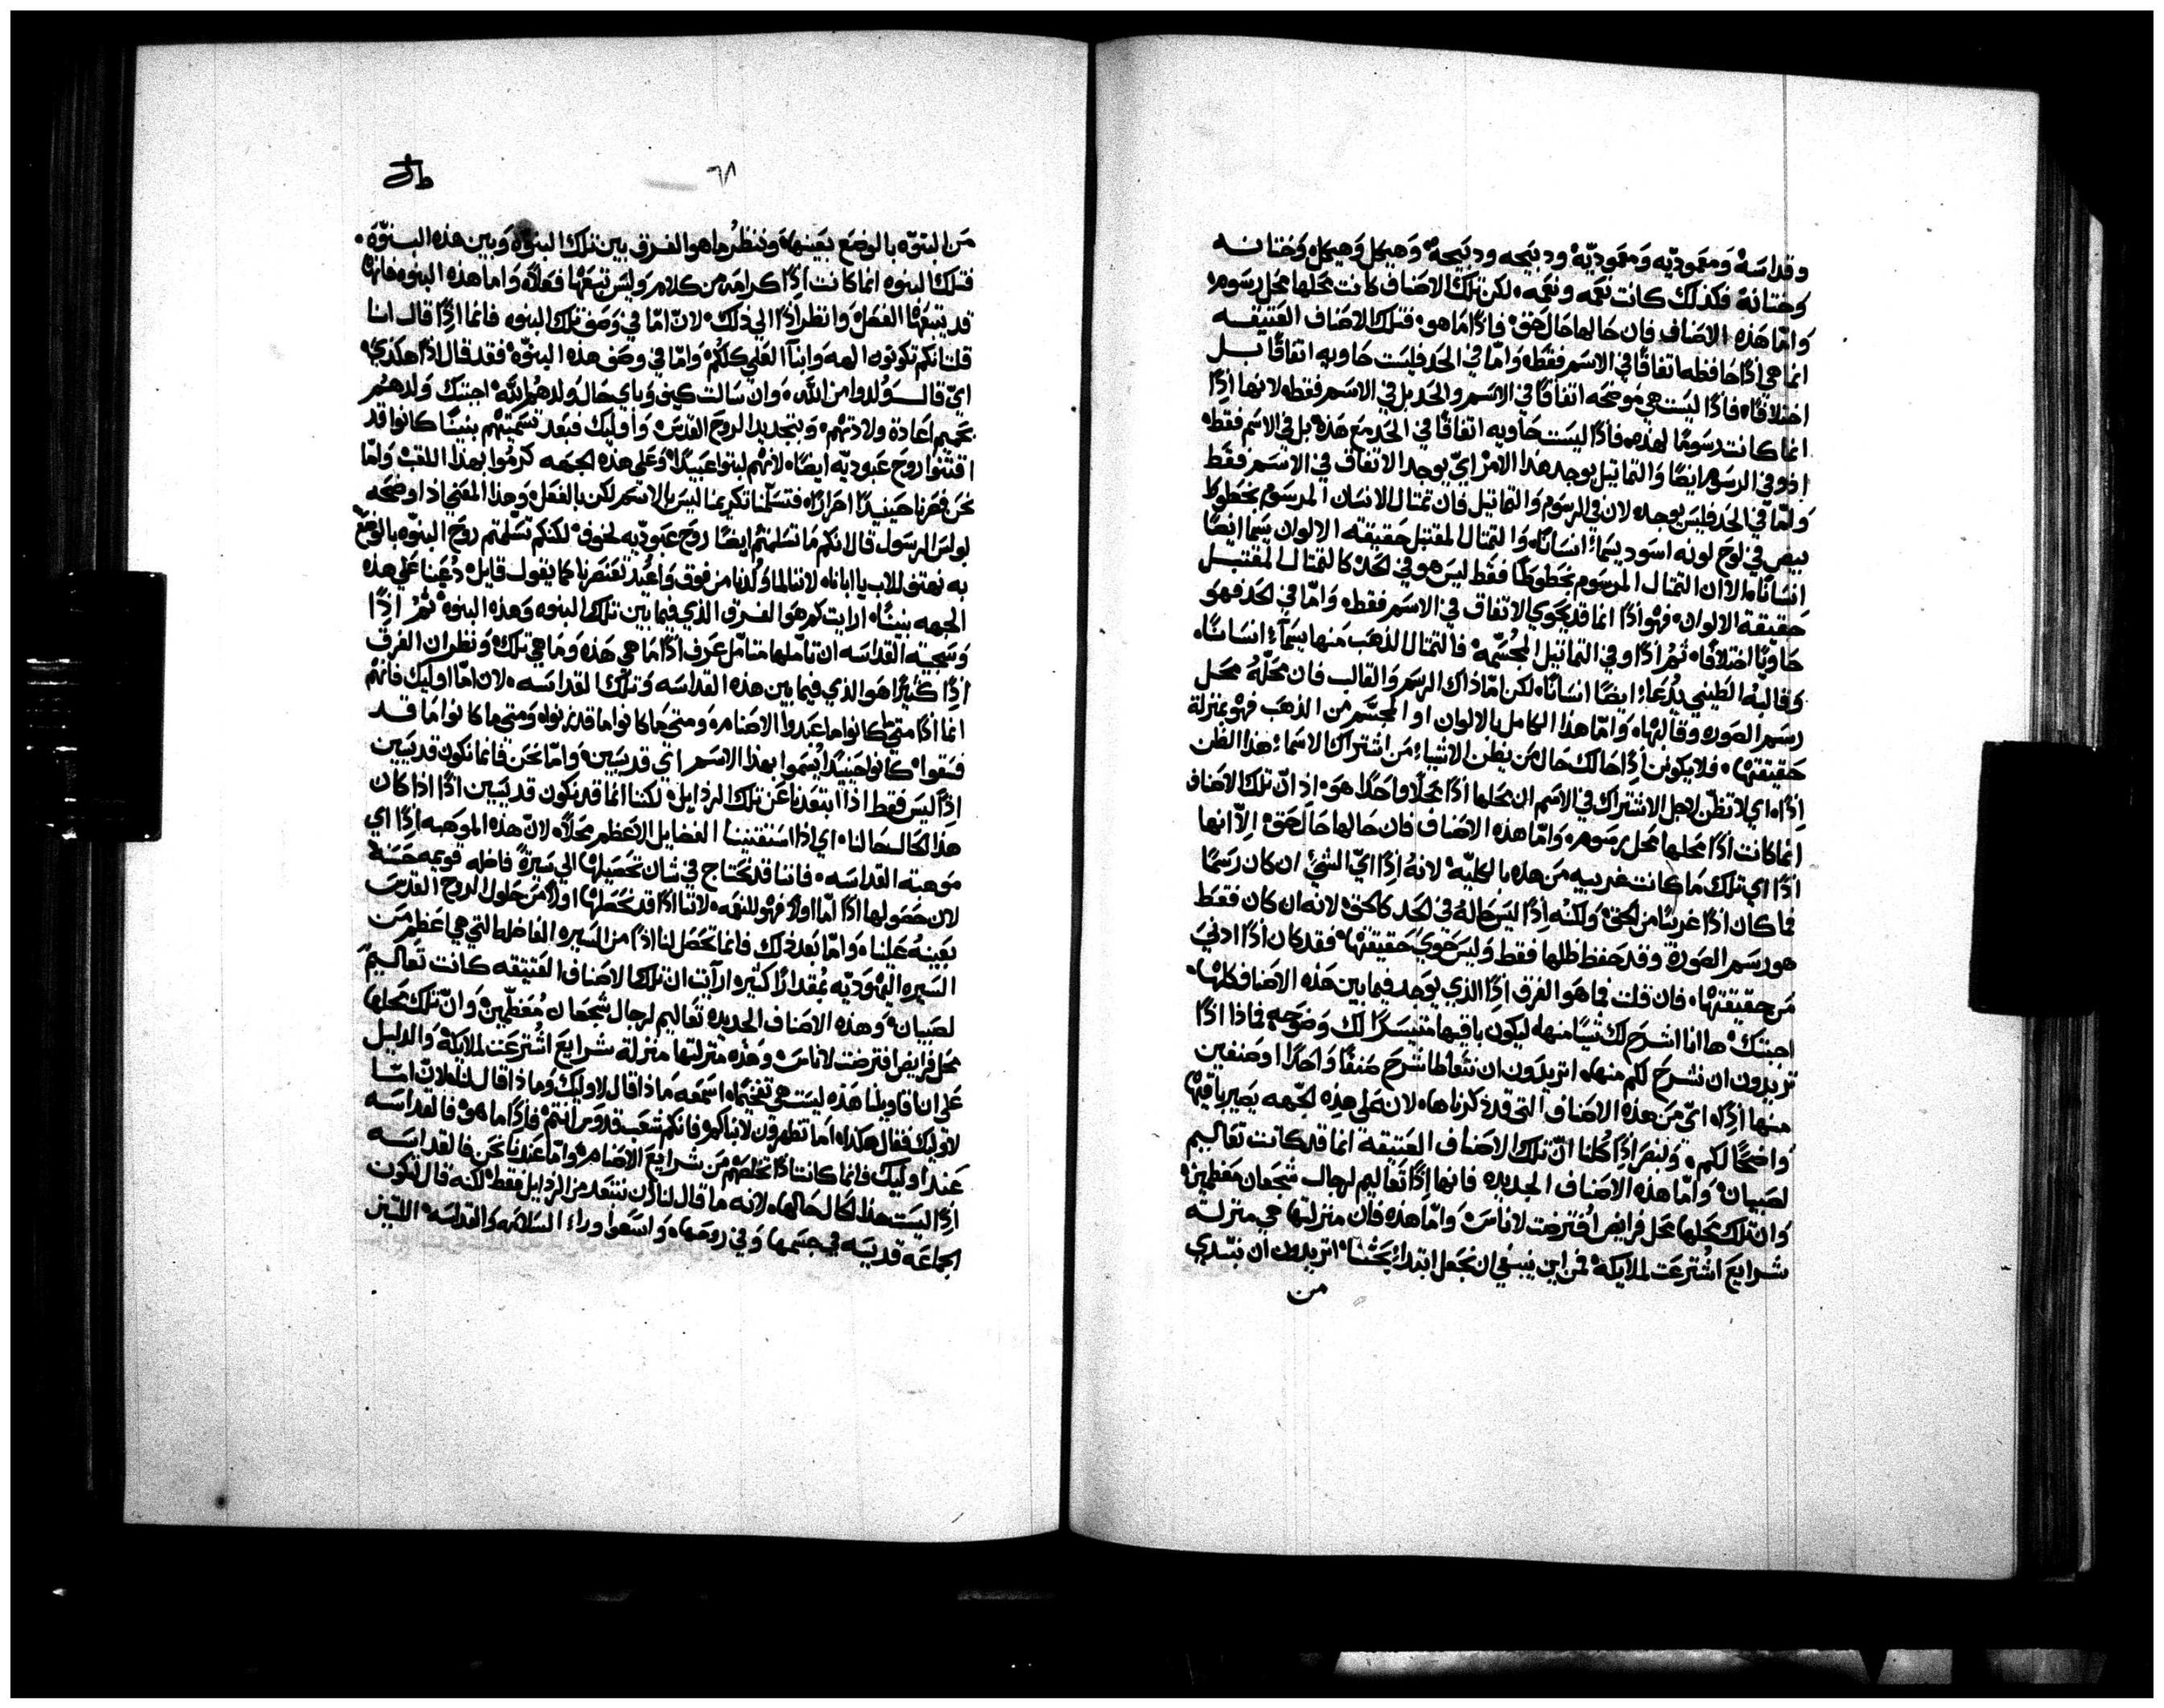 وقداسَهْ وَمعَموديّه وَمعَموديّهْ ودبيَحه ودبيَحهْ وَهيكل وَهيكلْ وَختانه
وختانهْ فكذلك كانت نعَمه ونعَمه. لكن تلك الاصَناف كانت محَلها محَل رسَومْ
وَامّا هَذه الاصَناف فان حَالها حَال حَقْ فاذًا مَا هوْ فتلك الاصَناف العَتيقه
انما هي اذًا حَافظه اتفاقًا في الاسَم فقطْ وَامّا في الحَد فليسَت حَاويه اتفاقًا بل
اختلافًا. فاذًا ليسَت هي موضحَه اتفاقًا في الاسَم والحَد بل في الاسَم فقطْ لانها اذًا
انما كانت رسَومًا لهذهْ فاذًا ليسَت حَاويه اتفاقًا في الحَد مَع هَذهْ بل في الاسَم فقطْ
اذ وفي الرسَوم ايضًا وَالتماتيل يوجد هَذا الامْر ايّ يوجد الاتفاق في الاسَم فقط
وَامّا في الحَد فليسَ يوجد. لان في الرسَوم وَالتماتيل فان تمتال الانسَان المرسَوم بخطوط
بيض في لوَح لونه اسَود يسَماْ انسَانًا. وَالتمتال المقتبل حَقيقته الالوان يسَما ايضًا
انسَانًا. الا ان التمتال المرسَوم بخَطوطْ فقط ليسَ هو في الحَد كالتمتال المقتبل
حَقيقة الالوانْ فهوْ اذًا انما قد يحَوي الاتفاق في الاسَم فقطْ وَامّا في الحَد فهوَ
حَاويًا اختلافًا. تمْ اذًا وفي التماتيل المجُسّمهْ فالتمتال الذهَب منها يسَمآء انسَانًا.
وقالبهْ الطيني يُدعَاء ايضًا انسَانًا. لكن امّا ذاك الرسَم وَالقالب فان محَلهْ محَل
رسَم الصَوره وقالبهْا. وَامّا هذا الكامل بالالوان او المجسَّم من الذهَب فهوْ بمنزلة
حَقيقتهْا. فلا يكونن اذًا حَالك حَال مَن يظن الاشياء مَن اشتراك الاسَماء هذا الظن
اذًا. اي لا تظن لاجل الاشتراك في الاسَم ان محَلها اذًا محَلاً واحَدًا هوَ. اذ انّ تلك الاصَناف
انما كانت اذًا محَلها محَل رسَومْ. وَامّا هذه الاصَناف فان حَالها حَال حَقْ الاّ انها
اذًا اي تلك مَا كانت غريبه مَن هذه بالكليّهْ لانهْ اذًا ايّ الشيْ ان كان رسَمًا
فما كان اذًا غريبًا من الحقْ وَلكنهْ اذًا ليسَ حَالهْ في الحَد كالحَقْ لانه ان كان فقط
هو رسَم الصَورة وقد حَفظ ظلها فقط وَليسَ حَويَ حَقيقتهْا. فقد كان اذًا ادنيَ
مَن حَقيقتهْا. فان قلت فما هَو الفرق اذًا الذي يوجَد فيما بين هَذه الاصَناف كلهْا.
اجبتك ها انا اشرَح لك شيًا منها. ليكون باقيها متيسَرًا لك وَضوحَهْ فماذا اذًا
تريدون ان نشرَح لكم منها. اتريدَون ان نتعَاطا شرَح صَنفًا وَاحَدًا او صَنفين
منها اذًا. ايّ مَن هَذه الاصَناف التي قد ذكرناها. لان عَلي هذه الجَهه يصَير باقيهْا
وَاضحًا لكمْ. وَلنبصَر اذًا كلنا انّ تلك الاصَناف العَتيقة انما قد كانت تعَاليم
لصَبيانْ وَامّا هذه الاصَناف الجديده فانها اذًا تعَاليم لرجال شجعَان معَظمينْ
وَان تلك محَلها محَل فرايض اُفترضت لاناسَْ وَامّا هذه فان منزلتها هي منزلة
شرايعَ اشتُرعَت لملايكهْ فمن اين ينبغي ان نجَعل ابتداءْ بحَثنا. اتريدون ان نبتدي
من
٦٨
مَن البنوّه بالوضَع بعَينها. وَننظرْ ما هو الفرق بين تلك البنوّهْ وَبين هذه البنوّهَ.
فتلك البنوه انما كانت اذًا كرامَه من كلامْ وَليسَ تتبعَهْا فعَلاً. وَاما هذه البنوه فانهْا
قد يتبعَهْا الفعَلْ وَانظر اذًا الي ذلك. لانّ امّا في وَصَف تلك البنوه فانما اذًا قال انا
قلت انكم تكونون الهه وَابنآ العَلي كلكْمْ وَامّا في وصَف هذه البنوّهْ فقد قال اذًا هَكذيْ
ايّ قال وُلدوا من اللهْ. وَان سَالت كيف وَباي حَال ولدهُم اللهْ اجبتك وَلدهُم
بحَميم اعَادة ولادتهُمْ. وَبتجديد الروحَ القدسَْ وَاوليك فبعَد تسَميتهُم بنينًا كانوا قد
اقتنوْا روحَ عَبوديّه ايضًا. لانهُم لبتوا عَبيدًا. وَعَلي هذه الجهَه كرمُوا بهذا اللقبْ وَامّا
نحَن فصَرنا حَينيدًا احرَارًا. فتسَلمنا تكريمنا ليسَ بالاسَم لكن بالفعَلْ وَهذا المعَني اذ اوضحَه
بولسَ الرسَول قال انكم مَا تسَلمتمْ ايضًا روحَ عَبوديّه لخوفْ لكنكم تسَلمتم روحَ البنوّه بالوضَعْ
به نهتف للاب يا ابانا. لاننا لما وُلدنا من فوق وَاعُيد تعَنصَرنا كما يقول قايلْ دُعَينا عَلي هذه
الجهه بنينًا. ارايت كم هَو الفرق الذي فيما بين تلك البنوه وهَذه البنوهْ تمْ اذًا
وَسَجية القداسَه ان تامَلها متامّل عَرف اذًا مَا هي هَذه وَمَا هي تلكْ وَنظر ان الفرق
اذًا كتيرًا هَو الذي فيما بين هذه القداسَه وَتلك القداسَه. لان امّا اوليك فانهُم
انما اذًا متي كانوا ما عَبدوا الاصَنامْ. وَمتي مَا كانوا ما قد زنوا. وَمتي ما كانوا مَا قد
فسَقوا. كانوا حَينيدًا يُسَموا بهذا الاسَم اي قديسَينْ. وَامّا نحَن فانما نكون قديسَين
اذًا ليسَ فقط اذا ابتعَدنا عَن تلك الرذايلْ لكننا انما قد نكون قديسَين اذًا اذا كان
هَذا الحَال حَالنا. اي اذا استقنينا الفضايل الاعَظم محَلاً. لانّ هذه الموهَبه اذًا اي
موَهبة القداسَه. فاننا قد نحَتاج في شان تحَصيلهْا الي سَيرةً فاضله قويمه حَسَنهْ
لان حَصَولها اذًا امّا اولاً فهوْ للنعَمه. لاننا اذًا قد نحَصلهْا اولاً من حَلول الروحَ القدسَ
بعَينهْ عَلينا. وَامّا بعَد ذلك فانما تحَصَل لنا اذًا من السَيره الفاضله التي هي اعَظم من
السَيره اليهَوديّه بمُقدارًا كتيرْ ارآيت ان تلك الاصَناف العَتيقه كانت تعَاليمْ
لصَبيانْ وَهذه الاصَناف الجديده تعَاليم لرجال شجعَان مُعَظّمينْ وَانّ تلك محَلها
محَل فرايض افترضت لاناسَ. وَهَذه منزلتها منزلة شرايعَ اشُترعَت لملايكهْ وَالدليل
عَلي ان قاويلنا هَذه ليسَت هي تفخيمًا. اسَمعَه مَاذا قال لاوليكْ وَماذا قال لنا. لانّ امّا
لاوليك فقال هكذا. امَا تطهرون لاباكم فانكم شعَب قدوسَ انتمْ فاذًا ما هوْ فالقداسَه
عَند اوليك فانما كانت اذًا تخلصَهْم من شرايعَ الاصَنامْ. وَامّا عَندنا نحَن فالقداسَه
اذًا ليسَت هذا الحَال حَالها. لانه مَا قال لنا ان نبتعَد من الرذايل فقطْ لكنه قال لتكون
الجماعَه قديسَه في جسَمها وَفي روحَها. وَاسَعَوا وراء السَلامَه وَالقداسَهْ اللتين